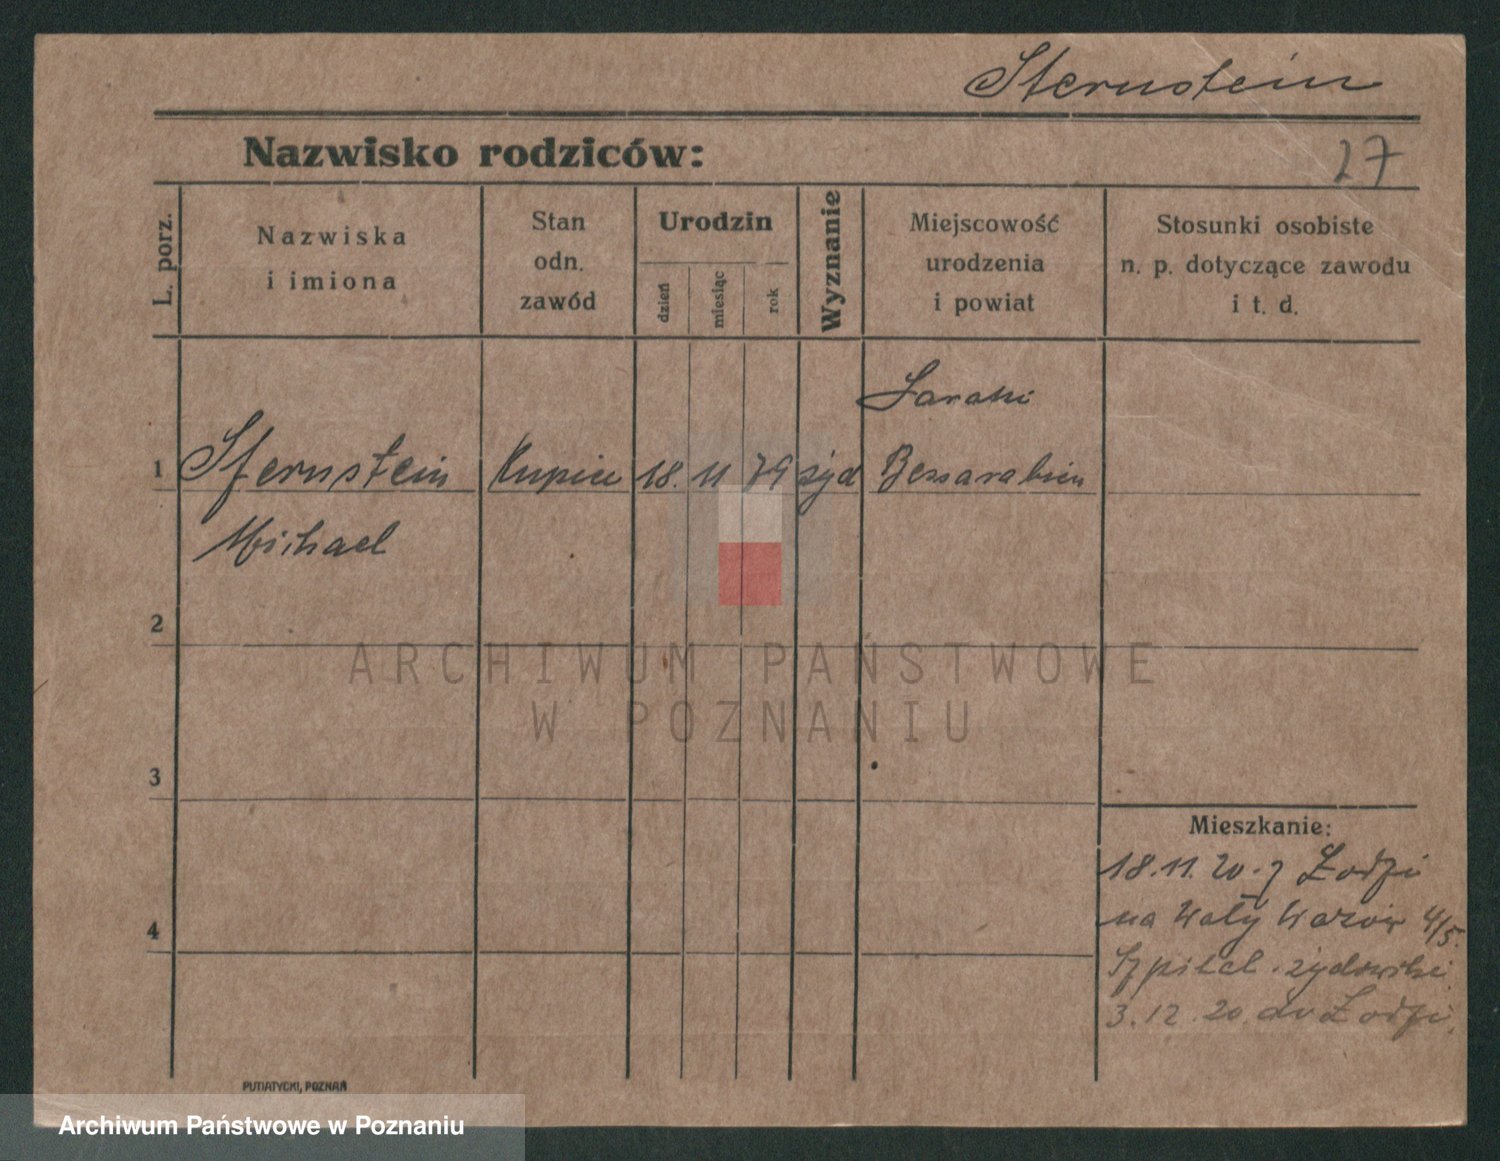 Sternstein
Nazwisko rodziców:
27
L. porz.
Nazwiska
i imiona
Stan
odn.
zawód
Urodzin
dzień
miesiąc
rok
Wyznanie
Miejscowość
urodzenia
i powiat
Stosunki osobiste
n. p. dotyczące zawodu
i t. d.
1 Sternstein Kupiec 18. 11 79 żyd Bessarabien
Michael
2
3
4
Mieszkanie:
18.11.20. z Łodzi
na Wały Wazów 4/5.
Szpital żydowski
3.12.20. do Łodzi.
PUTIATYCKI, POZNAŃ
ARCHIWUM PAŃSTWOWE
W POZNANIU
Archiwum Państwowe w Poznaniu